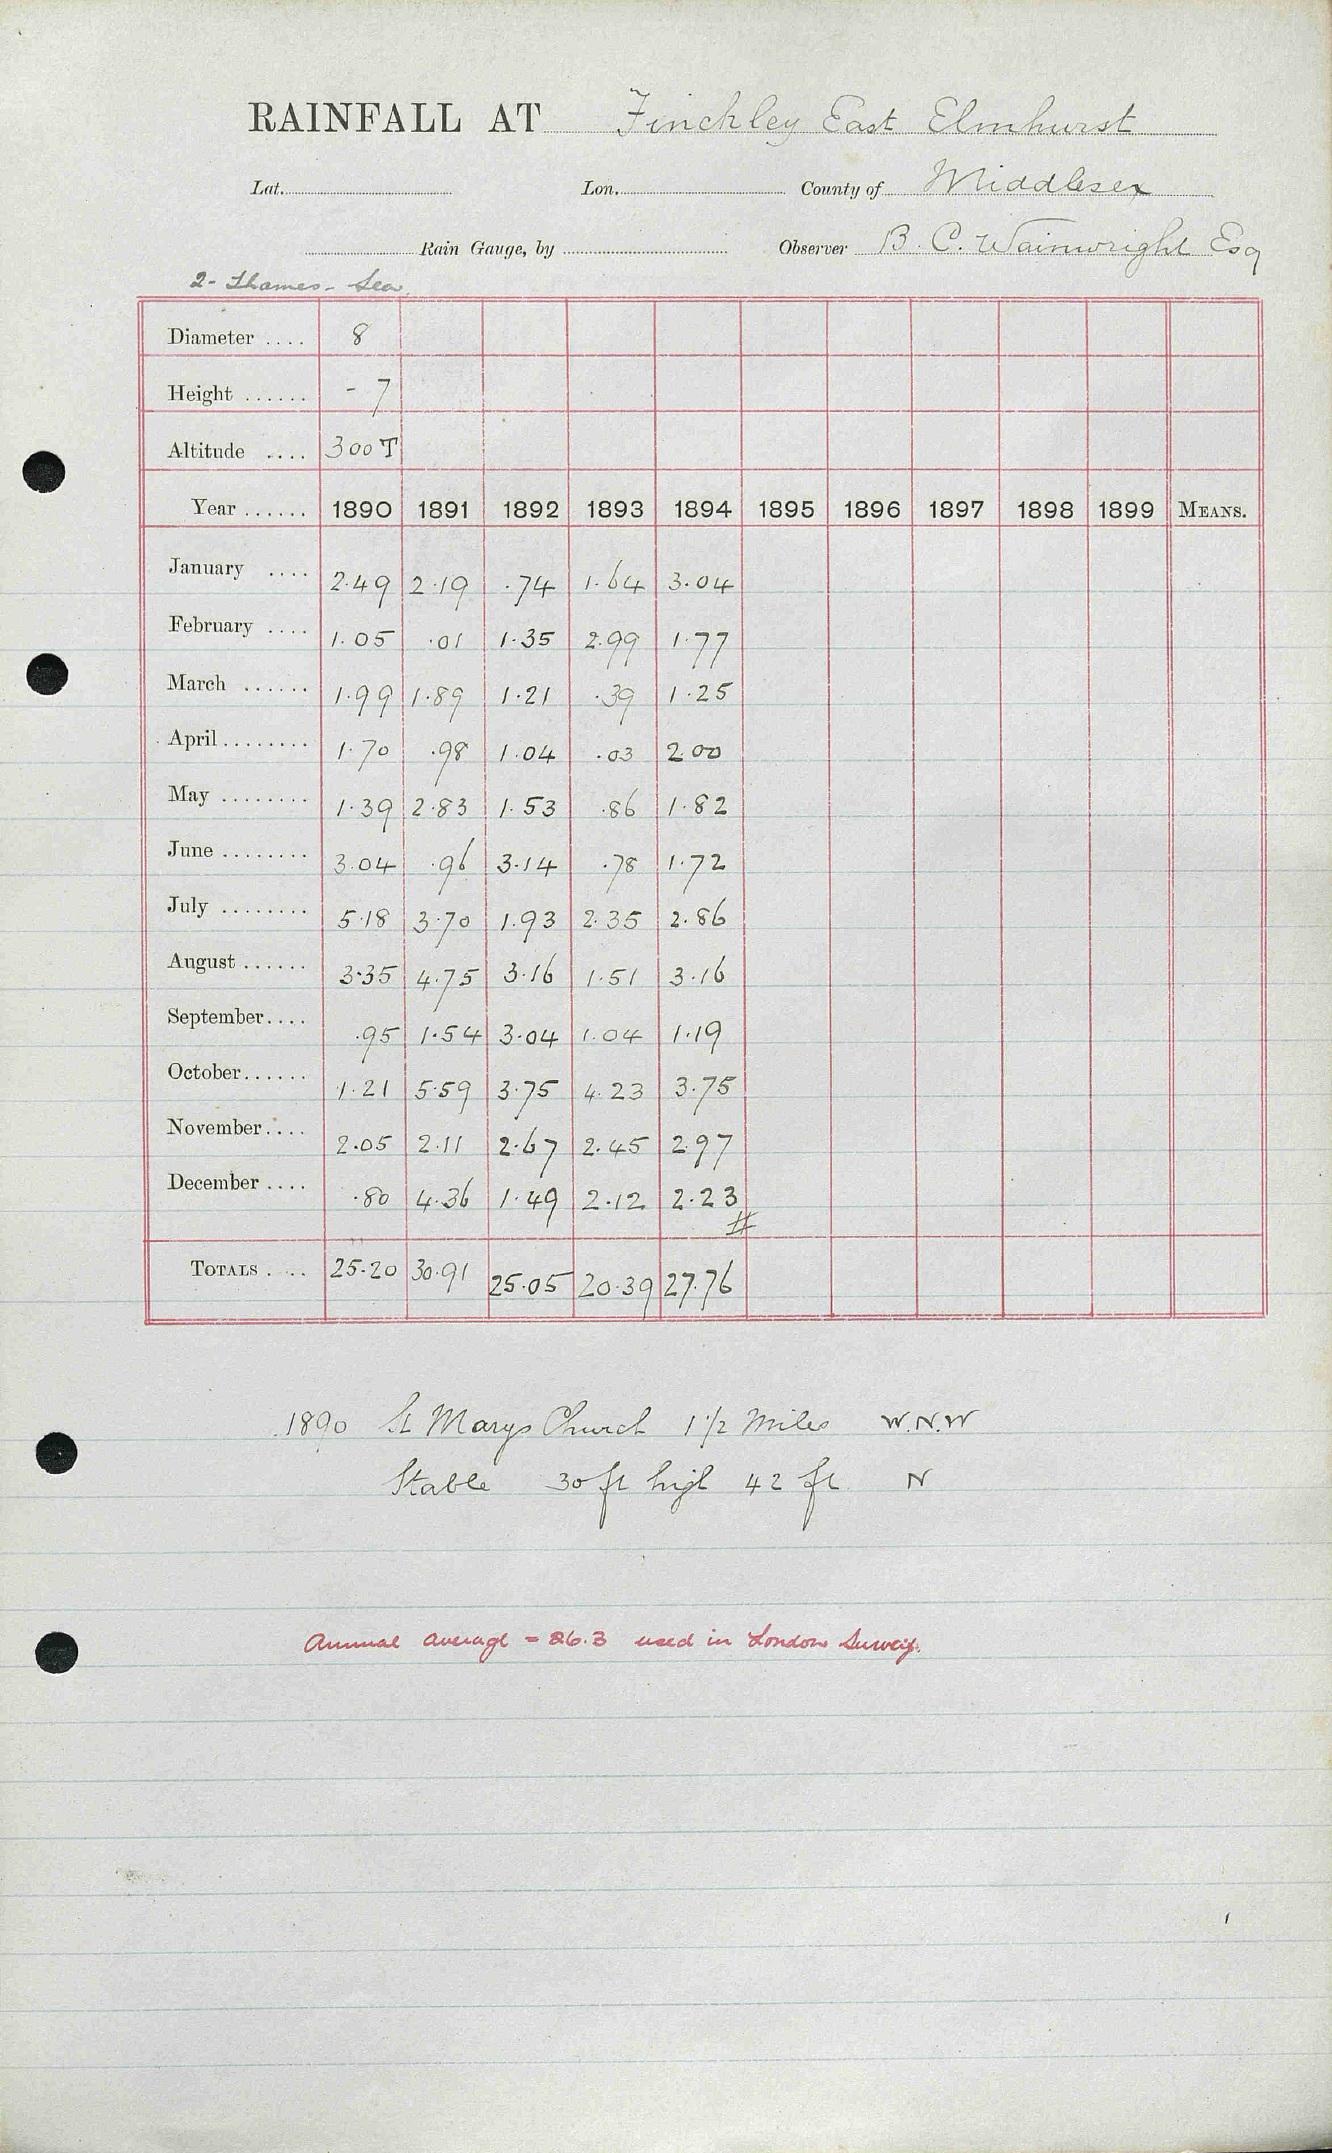 RAINFALL AT Finchley East Elmhurst
Lat. Lon. County of Middlesex
Rain Gauge, by Observer B. C. Wainwright Esq
2- Thames - Sea
Diameter .... 8
Height ...... - 7
Altitude .... 300 T
Year ...... 1890 1891 1892 1893 1894 1895 1896 1897 1898 1899 MEANS.
January .... 2.49 2.19 .74 1.64 3.04
February .... 1.05 .01 1.35 2.99 1.77
March ...... 1.99 1.89 1.21 .39 1.25
April ........ 1.70 .98 1.04 .03 2.00
May ........ 1.39 2.83 1.53 .86 1.82
June ........ 3.04 .96 3.14 .78 1.72
July ........ 5.18 3.70 1.93 2.35 2.86
August ...... 3.35 4.75 3.16 1.51 3.16
September .... .95 1.54 3.04 1.04 1.19
October ...... 1.21 5.59 3.75 4.23 3.75
November .... 2.05 2.11 2.67 2.45 2.97
December .... .80 4.36 1.49 2.12 2.23
#
TOTALS .... 25.20 30.91 25.05 20.39 27.76
1890 St Marys Church 1 1/2 Miles W.N.W
Stable 30 ft high 42 ft N
Annual average = 26.3 used in London Survey.